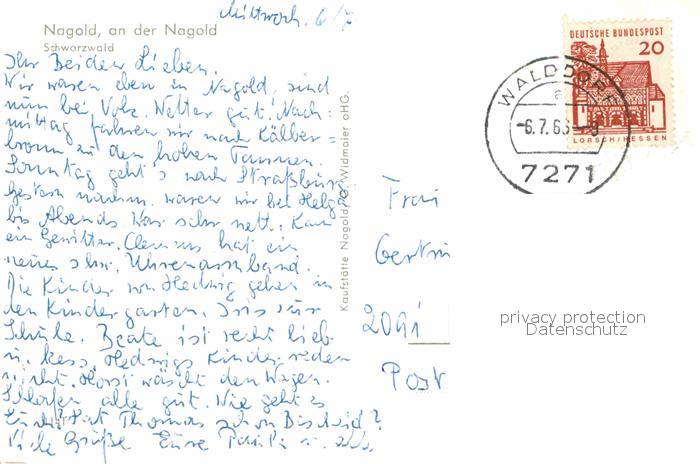 Mittwoch. 6/7
Nagold, an der Nagold
Schwarzwald
Ihr Beiden Lieben.
Wir waren eben in Nagold, sind
nun bei Volz. Wetter gut. Nach=
mittag fahren wir nach Kälber=
bronn zu den hohen Tannen.
Sonntag geht's nach Straßburg
Gestern nachm. waren wir bei Helga
bis Abends War sehr nett. Kam
ein Gewitter. Clemens hat ein
neues Uhrenarmband.
Die Kinder von Hedwig gehen in
den Kindergarten. Iris zur
Schule. Beate ist recht lieb
u. kess. Hedwigs Kinder reden
nicht. Horst wäscht den Wagen.
Schlafen alle gut. Wie geht es
Euch? Hat Thomas schon Bescheid?
Viele Grüße Eure u. alle
Kaufstätte Nagold, G. Widmaier oHG.
DEUTSCHE BUNDESPOST
20
LORSCH/HESSEN
WALDDORF
a
-6.7.66-8
7271
Frau
2091
Post
privacy protection
Datenschutz